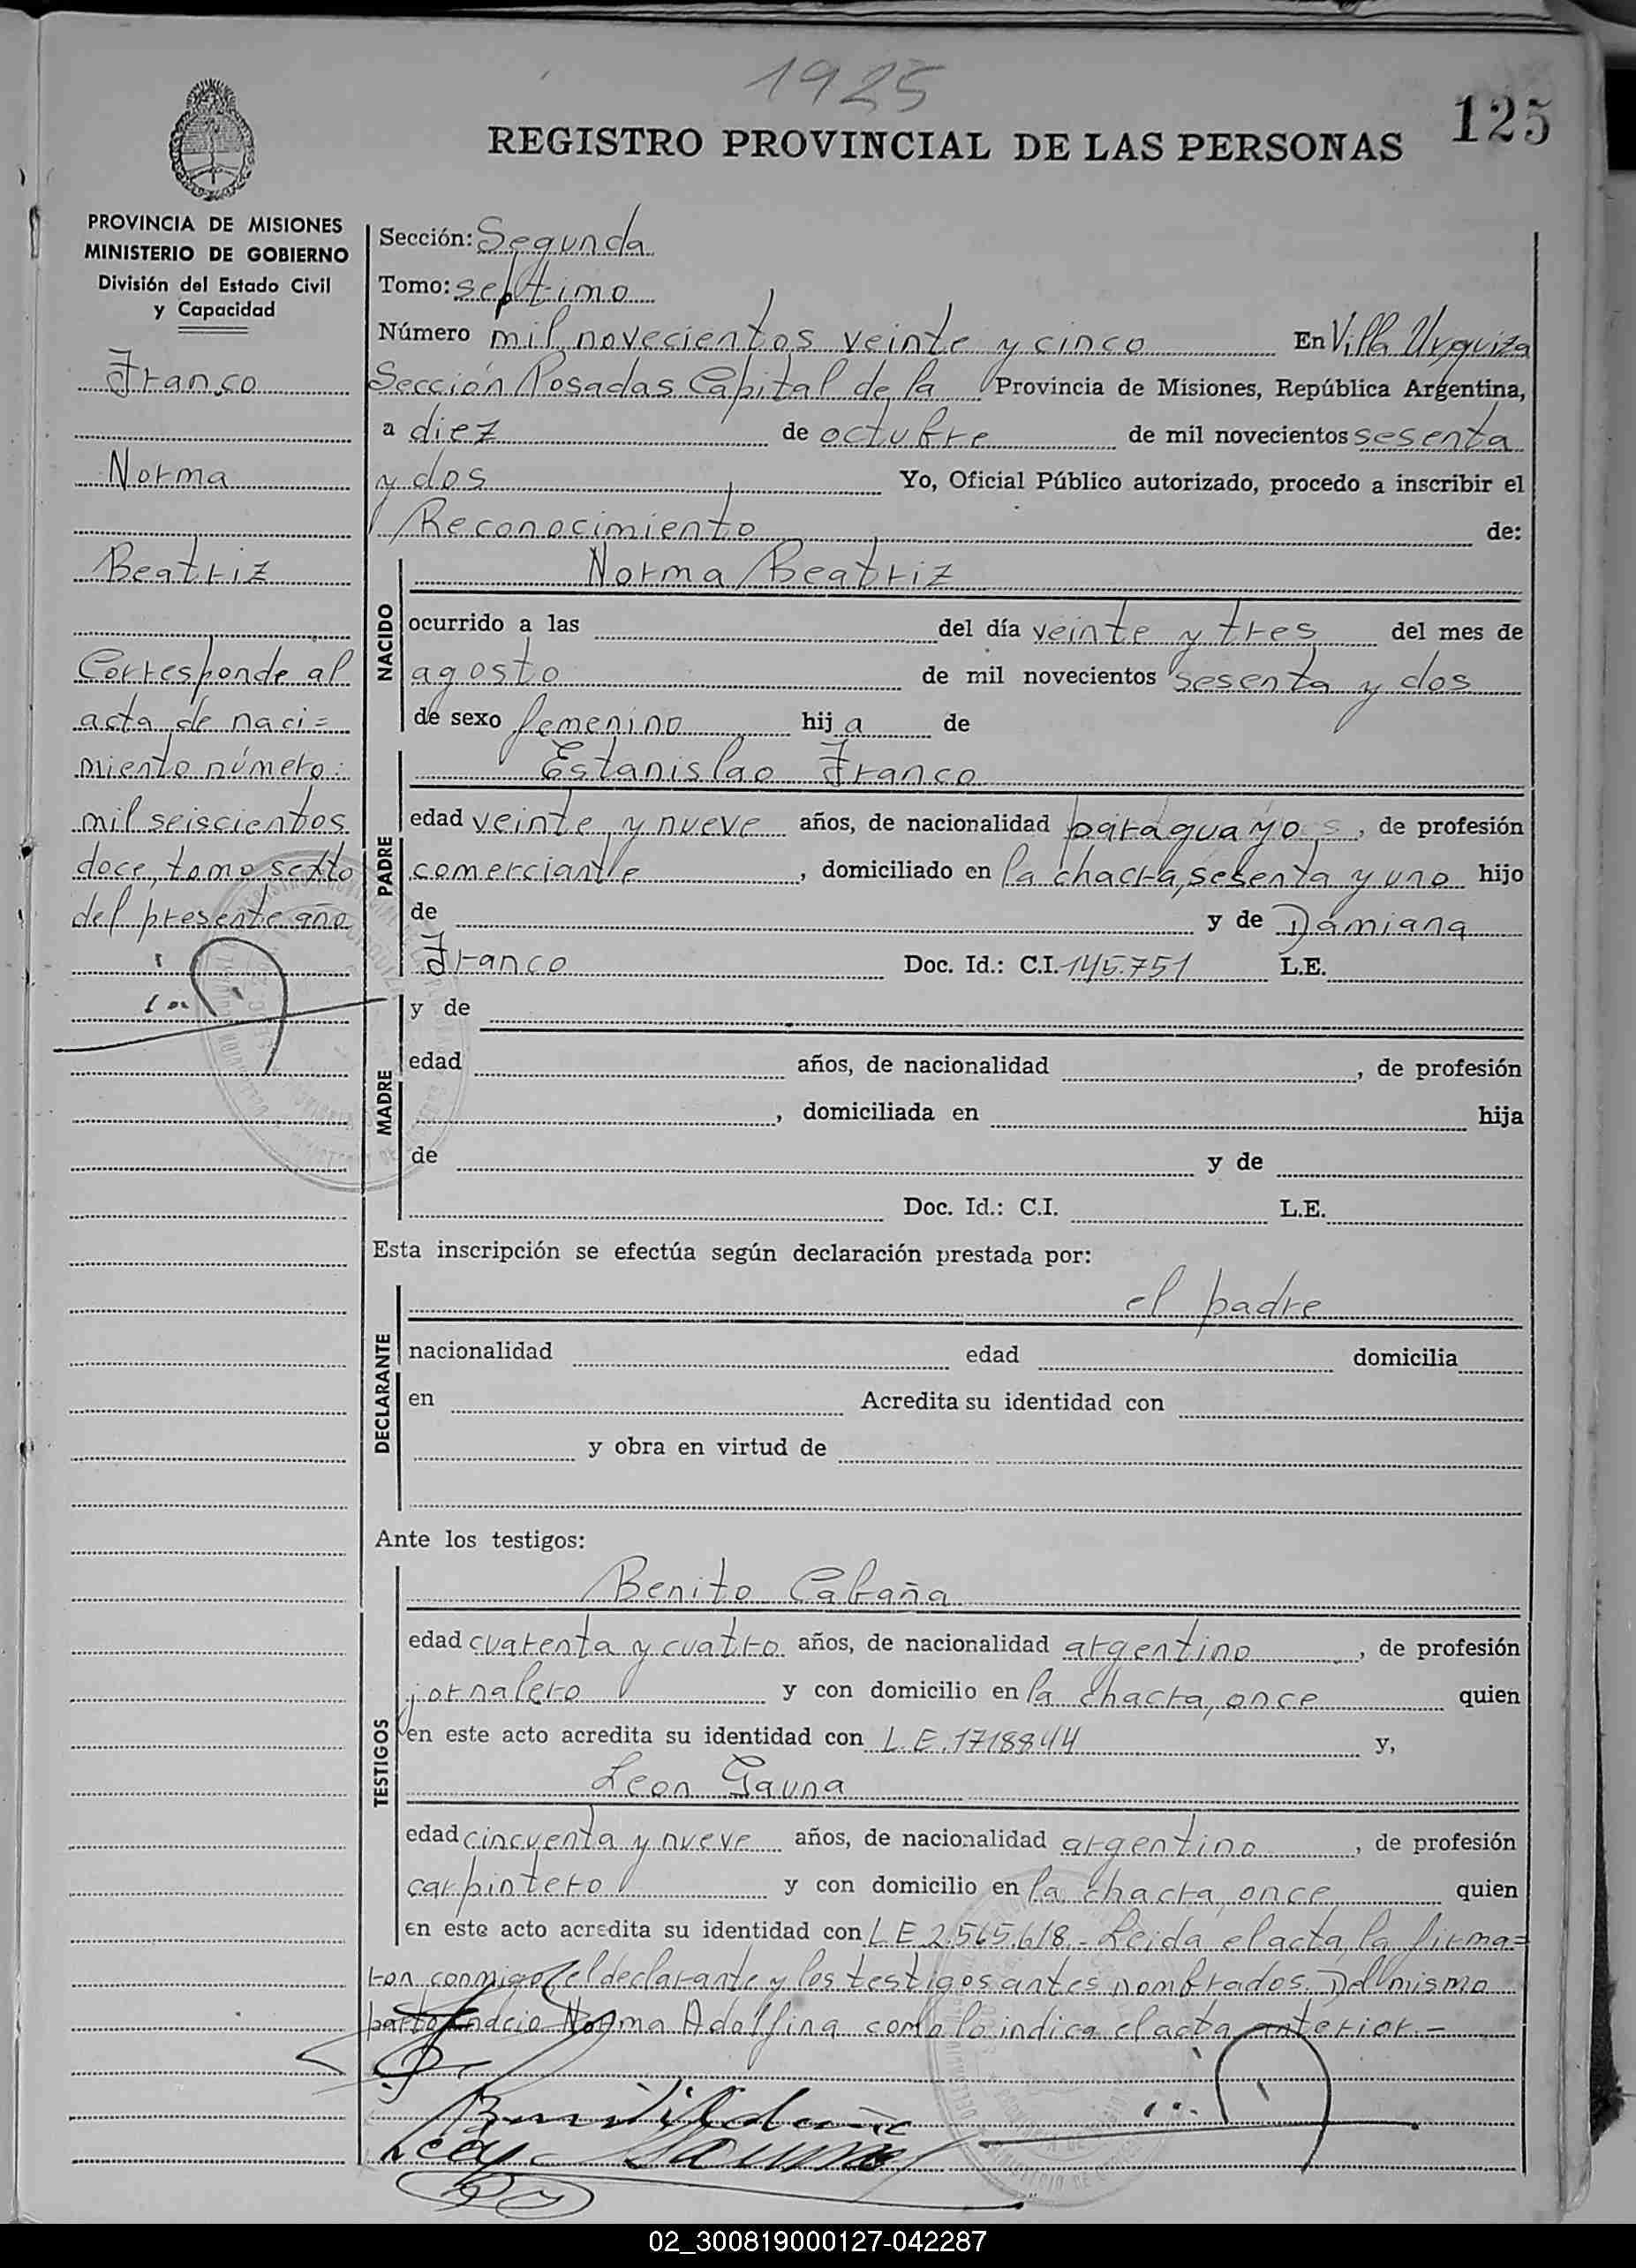 1925
125
REGISTRO PROVINCIAL DE LAS PERSONAS
PROVINCIA DE MISIONES
MINISTERIO DE GOBIERNO
División del Estado Civil
y Capacidad
Franco
Norma
Beatriz
Corresponde al
acta de naci=
miento número:
mil seiscientos
doce, tomo sexto
del presente año
Sección: Segunda
Tomo: septimo
Número mil novecientos veinte y cinco En Villa Urquiza
Sección Posadas Capital de la Provincia de Misiones, República Argentina,
a diez de octubre de mil novecientos sesenta
y dos Yo, Oficial Público autorizado, procedo a inscribir el
Reconocimiento de:
NACIDO
Norma Beatriz
ocurrido a las del día veinte y tres del mes de
agosto de mil novecientos sesenta y dos
de sexo femenino hija de
PADRE
Estanislao Franco
edad veinte y nueve años, de nacionalidad paraguayo, de profesión
comerciante, domiciliado en la chacra, sesenta y uno hijo
de y de Damiana
Franco Doc. Id.: C.I. 145.751 L.E.
MADRE
y de
edad años, de nacionalidad , de profesión
, domiciliada en hija
de y de
Doc. Id.: C.I. L.E.
Esta inscripción se efectúa según declaración prestada por:
DECLARANTE
el padre
nacionalidad edad domicilia
en Acredita su identidad con
y obra en virtud de
Ante los testigos:
TESTIGOS
Benito Cabaña
edad cuarenta y cuatro años, de nacionalidad argentino, de profesión
jornalero y con domicilio en la chacra, once quien
en este acto acredita su identidad con L.E. 1718844 y,
Leon Gauna
edad cincuenta y nueve años, de nacionalidad argentino, de profesión
carpintero y con domicilio en la chacra, once quien
en este acto acredita su identidad con L E 2.565.618.- Leida el acta la firma=
ron conmigo, el declarante y los testigos antes nombrados. Del mismo
parto nació Norma Adolfina como lo indica el acta anterior.-
02_300819000127-042287